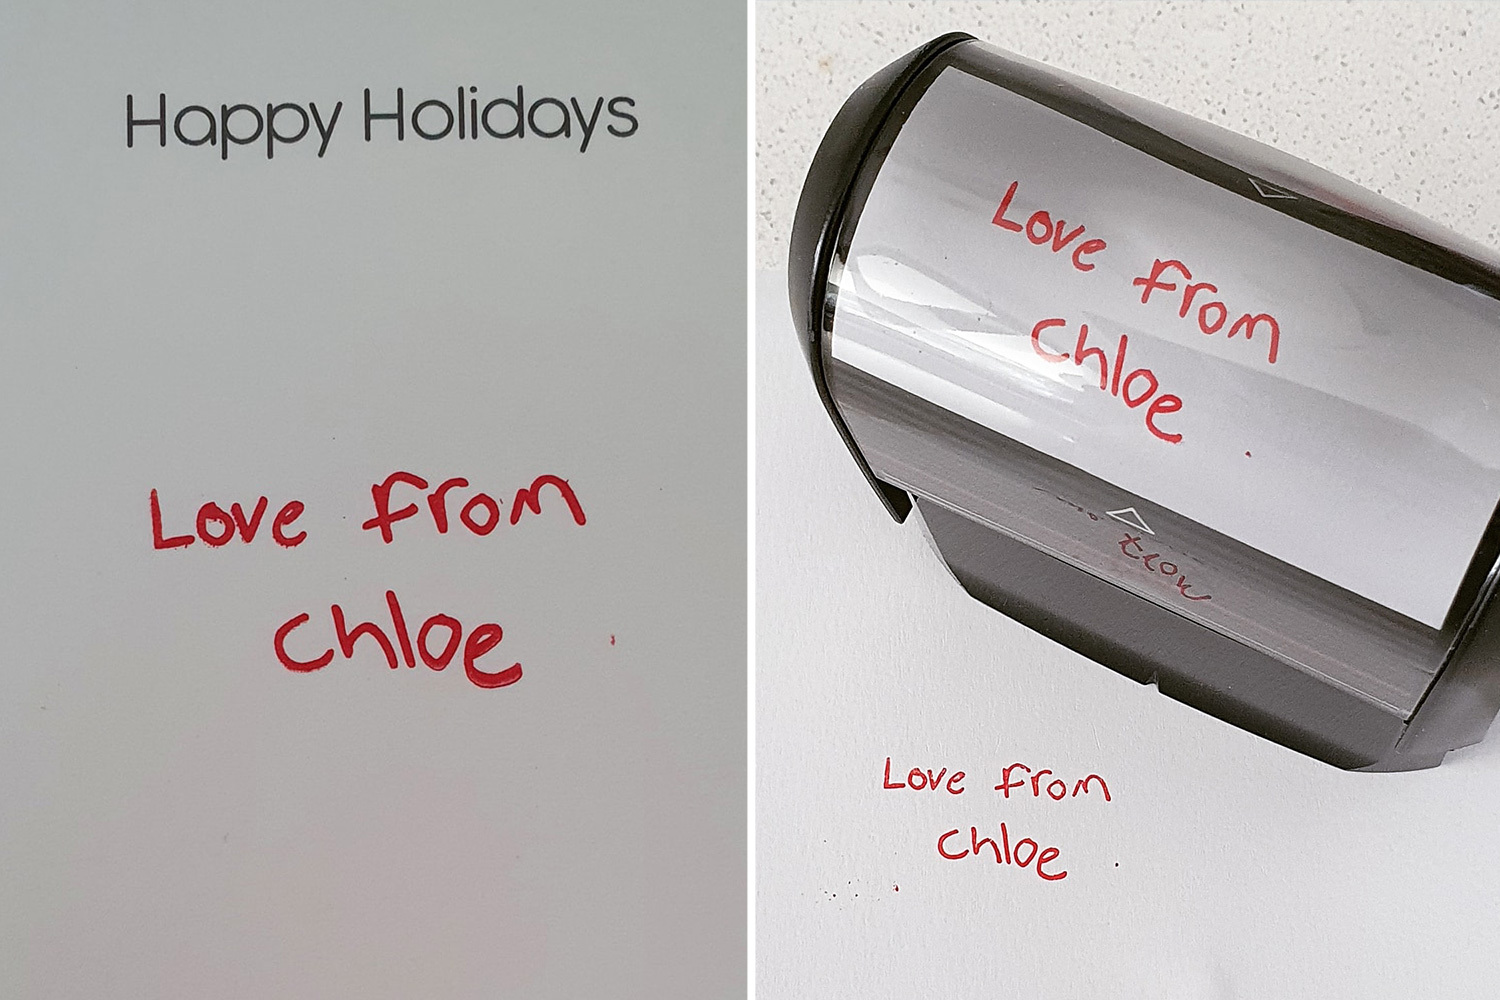 Happy Holidays
Love from
Chloe
Love from
Chloe
Love from
Chloe